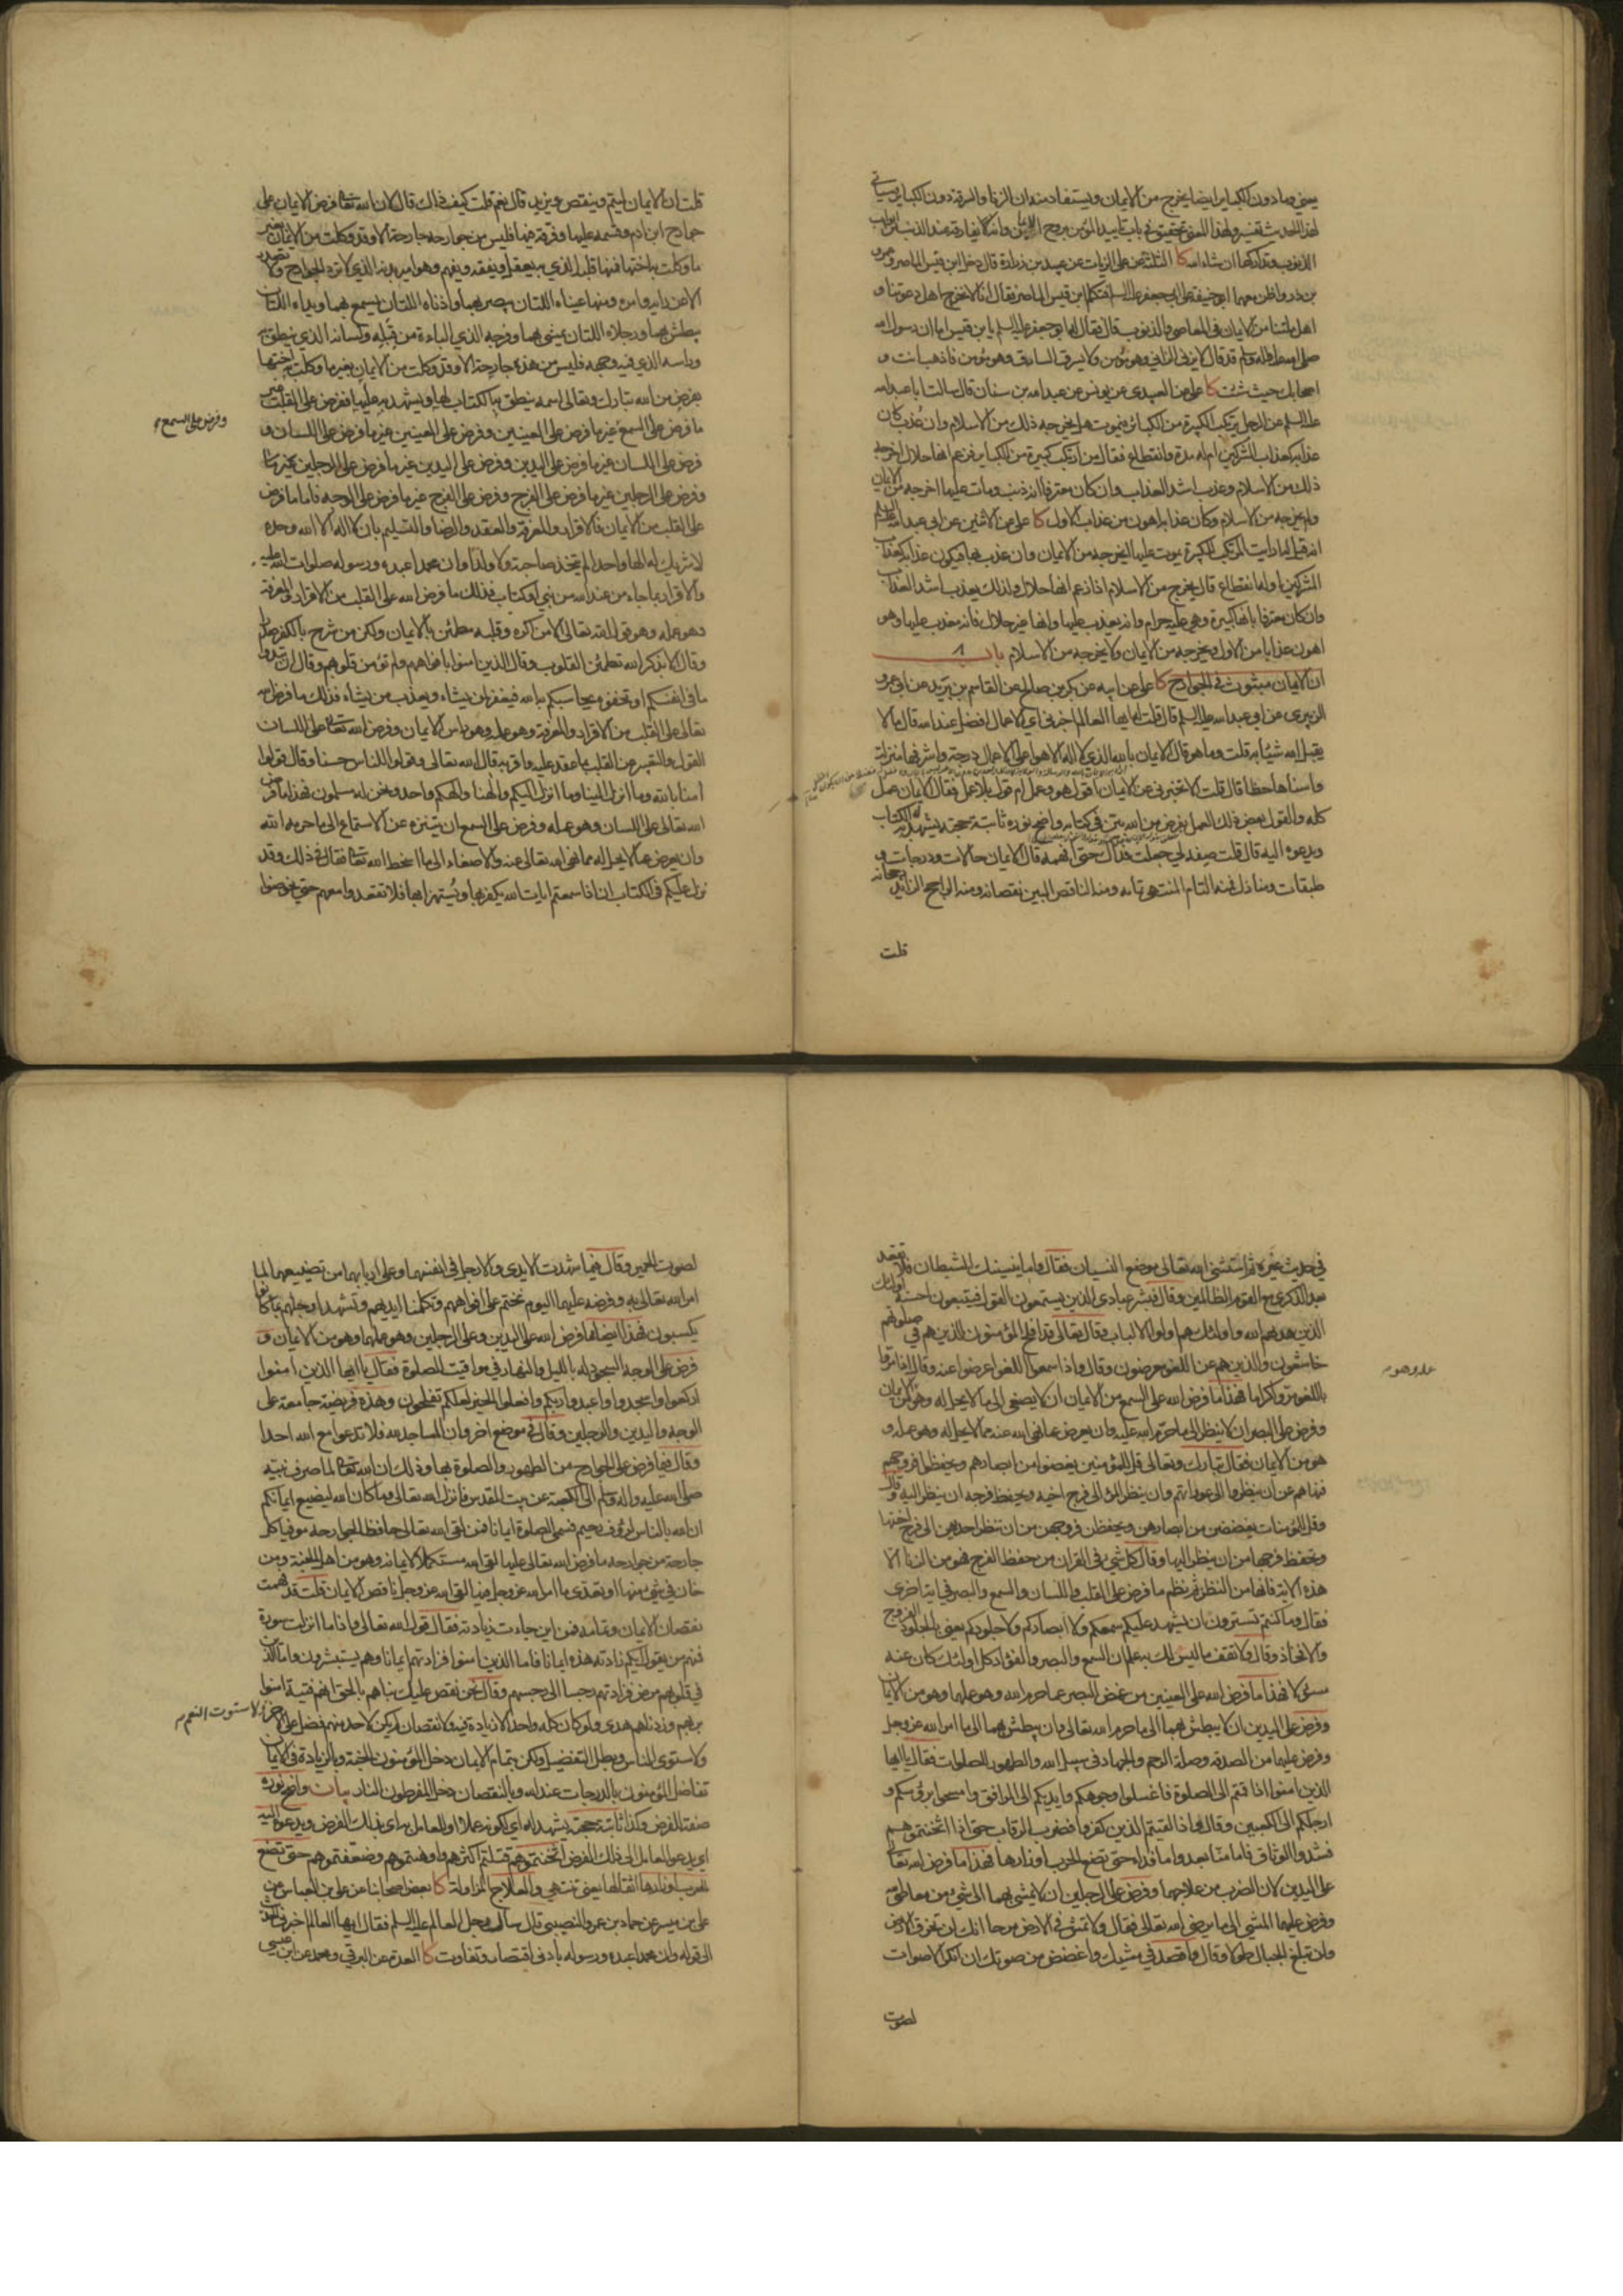 يعني وما دون الكباير ايضا يخرج من الايمان ويستفاد منه ان الزنا والسرقة دون الكباير وسياتي
لهذا الحديث تفسير ولهذا المعنى تحقيق في باب تاييد المؤمن بروح الايمان وانه لا يفارقه عند الذنب من ابواب
الذنوب وتداركها ان شاء الله كا الثلثة عن علي الزيات عن عبيد بن زرارة قال دخل ابن قيس الماصر وعمرو
بن ذر واظن معهما ابو حنيفة على ابي جعفر عليه السلم فتكلم ابن قيس الماصر فقال انا لا نخرج اهل دعوتنا و
اهل ملتنا من الايمان في المعاصي والذنوب قال فقال له ابو جعفر عليه السلم يا ابن قيس اما ان رسول الله
صلى الله عليه واله وسلم قد قال لا يزني الزاني وهو مؤمن ولا يسرق السارق وهو مؤمن فاذهب انت و
اصحابك حيث شئت كا علي عن العبيدي عن يونس عن عبد الله بن سنان قال سالت ابا عبد الله
عليه السلم عن الرجل يرتكب الكبيرة من الكبائر فيموت هل يخرجه ذلك من الاسلام وان عذب كان
عذابه كعذاب المشركين ام له مدة وانقطاع فقال من ارتكب كبيرة من الكباير فزعم انها حلال اخرجه
ذلك من الاسلام وعذب اشد العذاب وان كان معترفا انه ذنب ومات عليها اخرجه من الايمان
ولم يخرجه من الاسلام وكان عذابه اهون من عذاب الاول كا علي عن الاثنين عن ابي عبد الله عليه السلم
انه قيل له ارايت المرتكب للكبيرة يموت عليها اتخرجه من الايمان وان عذب بها فيكون عذابه كعذاب
المشركين او له انقطاع قال يخرج من الاسلام اذا زعم انها حلال ولذلك يعذب باشد العذاب
وان كان معترفا بانها كبيرة وهي عليه حرام وانه يعذب عليها وانها غير حلال فانه معذب عليها وهو
اهون عذابا من الاول ويخرجه من الايمان ولا يخرجه من الاسلام باب ٨
ان الايمان مبثوث في الجوارح كا علي عن ابيه عن بكر بن صالح عن القاسم بن بريد عن ابي عمرو
الزبيري عن ابي عبد الله عليه السلم قال قلت له ايها العالم اخبرني اي الاعمال افضل عند الله قال ما لا
يقبل الله شيئا الا به قلت وما هو قال الايمان بالله الذي لا اله الا هو اعلى الاعمال درجة واشرفها منزلة
واسناها حظا قال قلت الا تخبرني عن الايمان اقول هو وعمل ام قول بلا عمل فقال الايمان عمل
كله والقول بعض ذلك العمل بفرض من الله بين في كتابه واضح نوره ثابتة حجته يشهد له به الكتاب
ويدعوه اليه قال قلت صفه لي جعلت فداك حتى افهمه قال الايمان حالات ودرجات و
طبقات ومنازل فمنه التام المنتهي تمامه ومنه الناقص البين نقصانه ومنه الراجح الزائد رجحانه
قلت
قلت ان الايمان ليتم وينقص ويزيد قال نعم قلت كيف ذلك قال لان الله تعالى فرض الايمان على
جوارح ابن ادم وقسمه عليها وفرقه فيها فليس من جوارحه جارحة الا وقد وكلت من الايمان بغير
ما وكلت به اختها فمنها قلبه الذي به يعقل ويفقه ويفهم وهو امير بدنه الذي لا ترد الجوارح ولا تصدر
الا عن رايه وامره ومنها عيناه اللتان يبصر بهما واذناه اللتان يسمع بهما ويداه اللتان
يبطش بهما ورجلاه اللتان يمشي بهما وفرجه الذي الباءة من قبله ولسانه الذي ينطق به
وراسه الذي فيه وجهه فليس من هذه جارحة الا وقد وكلت من الايمان بغير ما وكلت به اختها
بفرض من الله تبارك وتعالى اسمه ينطق به الكتاب لها ويشهد به عليها ففرض على القلب غير
ما فرض على السمع غير ما فرض على العينين وفرض على العينين غير ما فرض على اللسان و
وفرض على السمع
فرض على اللسان غير ما فرض على اليدين وفرض على اليدين غير ما فرض على الرجلين
وفرض على الرجلين غير ما فرض على الفرج وفرض على الفرج غير ما فرض على الوجه فاما ما فرض
على القلب من الايمان فالاقرار والمعرفة والعقد والرضا والتسليم بان لا اله الا الله وحده
لا شريك له الها واحدا لم يتخذ صاحبة ولا ولدا وان محمدا عبده ورسوله صلوات الله عليه
والاقرار بما جاء من عند الله من نبي او كتاب فذلك ما فرض الله على القلب من الاقرار والمعرفة
وهو عمله وهو قول الله تعالى الا من اكره وقلبه مطمئن بالايمان ولكن من شرح بالكفر صدرا
وقال الا بذكر الله تطمئن القلوب وقال الذين امنوا بافواههم ولم تؤمن قلوبهم وقال ان تبدوا
ما في انفسكم او تخفوه يحاسبكم به الله فيغفر لمن يشاء ويعذب من يشاء فذلك ما فرض الله
تعالى على القلب من الاقرار والمعرفة وهو عمله وهو راس الايمان وفرض الله تعالى على اللسان
القول والتعبير عن القلب بما عقد عليه واقر به قال الله تعالى وقولوا للناس حسنا وقال قولوا
امنا بالله وما انزل الينا وما انزل اليكم والهنا والهكم واحد ونحن له مسلمون فهذا ما فرض
الله تعالى على اللسان وهو عمله وفرض على السمع ان يتنزه عن الاستماع الى ما حرم الله
وان يعرض عما لا يحل له مما نهى الله تعالى عنه والاصغاء الى ما اسخط الله تعالى فقال في ذلك وقد
نزل عليكم في الكتاب ان اذا سمعتم ايات الله يكفر بها ويستهزا بها فلا تقعدوا معهم حتى يخوضوا
في حديث غيره ثم استثنى الله تعالى موضع النسيان فقال واما ينسينك الشيطان فلا تقعد
بعد الذكرى مع القوم الظالمين وقال فبشر عبادي الذين يستمعون القول فيتبعون احسنه اولئك
الذين هديهم الله واولئك هم اولوا الالباب وقال تعالى قد افلح المؤمنون الذين هم في صلوتهم
خاشعون والذين هم عن اللغو معرضون وقال واذا سمعوا اللغو اعرضوا عنه وقال واذا مروا
باللغو مروا كراما فهذا ما فرض الله على السمع من الايمان ان لا يصغي الى ما لا يحل له وهو من الايمان
عمله وهو
وفرض على البصر ان لا ينظر الى ما حرم الله عليه وان يعرض عما نهى الله عنه مما لا يحل له وهو عمله و
هو من الايمان فقال تبارك وتعالى قل للمؤمنين يغضوا من ابصارهم ويحفظوا فروجهم
فنهاهم عن ان ينظروا الى عوراتهم وان ينظر المرؤ الى فرج اخيه ويحفظ فرجه ان ينظر اليه وقال
وقل للمؤمنات يغضضن من ابصارهن ويحفظن فروجهن من ان تنظر احديهن الى فرج اختها
وتحفظ فرجها من ان ينظر اليها وقال كل شيء في القران من حفظ الفرج فهو من الزنا الا
هذه الاية فانها من النظر ثم نظم ما فرض على القلب واللسان والسمع والبصر في اية اخرى
فقال وما كنتم تستترون ان يشهد عليكم سمعكم ولا ابصاركم ولا جلودكم يعني بالجلود الفروج
والافخاذ وقال ولا تقف ما ليس لك به علم ان السمع والبصر والفؤاد كل اولئك كان عنه
مسؤلا فهذا ما فرض الله على العينين من غض البصر عما حرم الله وهو عملهما وهو من الايمان
وفرض على اليدين ان لا يبطش بهما الى ما حرم الله تعالى وان يبطش بهما الى ما امر الله عز وجل
وفرض عليهما من الصدقة وصلة الرحم والجهاد في سبيل الله والطهور للصلوات فقال يا ايها
الذين امنوا اذا قمتم الى الصلوة فاغسلوا وجوهكم وايديكم الى المرافق وامسحوا برؤسكم و
ارجلكم الى الكعبين وقال فاذا لقيتم الذين كفروا فضرب الرقاب حتى اذا اثخنتموهم
فشدوا الوثاق فاما منا بعد واما فداء حتى تضع الحرب اوزارها فهذا ما فرض الله تعالى
على اليدين لان الضرب من علاجهما وفرض على الرجلين ان لا يمشي بهما الى شيء من معاصي الله
وفرض عليهما المشي الى ما يرضي الله تعالى فقال ولا تمش في الارض مرحا انك لن تخرق الارض
ولن تبلغ الجبال طولا وقال واقصد في مشيك واغضض من صوتك ان انكر الاصوات
لصوت
لصوت الحمير وقال فيما شهدت الايدي والارجل على انفسهما وعلى اربابهما من تضييعهما لما
امر الله تعالى به وفرضه عليهما اليوم نختم على افواههم وتكلمنا ايديهم وتشهد ارجلهم بما كانوا
يكسبون فهذا ايضا مما فرض الله على اليدين وعلى الرجلين وهو عملهما وهو من الايمان و
فرض على الوجه السجود له بالليل والنهار في مواقيت الصلوة فقال يا ايها الذين امنوا
اركعوا واسجدوا واعبدوا ربكم وافعلوا الخير لعلكم تفلحون وهذه فريضة جامعة على
الوجه واليدين والرجلين وقال في موضع اخر وان المساجد لله فلا تدعوا مع الله احدا
وقال فيما فرض على الجوارح من الطهور والصلوة بها وذلك ان الله تعالى لما صرف نبيه
صلى الله عليه واله وسلم الى الكعبة عن بيت المقدس فانزل الله تعالى وما كان الله ليضيع ايمانكم
ان الله بالناس لرؤف رحيم فسمى الصلوة ايمانا فمن لقي الله تعالى حافظا لجوارحه موفيا كل
جارحة من جوارحه ما فرض الله تعالى عليها لقي الله مستكملا لايمانه وهو من اهل الجنة ومن
خان في شيء منها او تعدى ما امر الله عز وجل فيها لقي الله عز وجل ناقص الايمان قلت قد فهمت
نقصان الايمان وتمامه فمن اين جاءت زيادته فقال قول الله تعالى واذا ما انزلت سورة
فمنهم من يقول ايكم زادته هذه ايمانا فاما الذين امنوا فزادتهم ايمانا وهم يستبشرون واما الذين
في قلوبهم مرض فزادتهم رجسا الى رجسهم وقال نحن نقص عليك نباهم بالحق انهم فتية امنوا
بربهم وزدناهم هدى ولو كان كله واحدا لا زيادة فيه ولا نقصان لم يكن لاحد منهم فضل على الاخر
ولاستوت النعم
ولاستوى الناس وبطل التفضيل ولكن بتمام الايمان دخل المؤمنون الجنة وبالزيادة في الايمان
تفاضل المؤمنون بالدرجات عند الله وبالنقصان دخل المفرطون النار بيان واضح نوره
صفة للفرض وكذا ثابتة حجته يشهد له اي لكونه عملا او للعامل به اي بذلك الفرض ويدعوه اليه
اي يدعو العامل الى ذلك الفرض اثخنتموهم قتلتم اكثرهم واوهنتموهم وضعفتموهم حتى تضع
الحرب اوزارها اثقالها يعني تنتهي والعلاج المزاولة كا بعض اصحابنا عن علي بن العباس عن
علي بن ميسر عن حماد بن عمرو النصيبي قال سال رجل العالم عليه السلم فقال ايها العالم اخبرني
الى قوله وان محمدا عبده ورسوله بادنى اختصار وتفاوت كا العدة عن البرقي ومحمد عن ابن عيسى